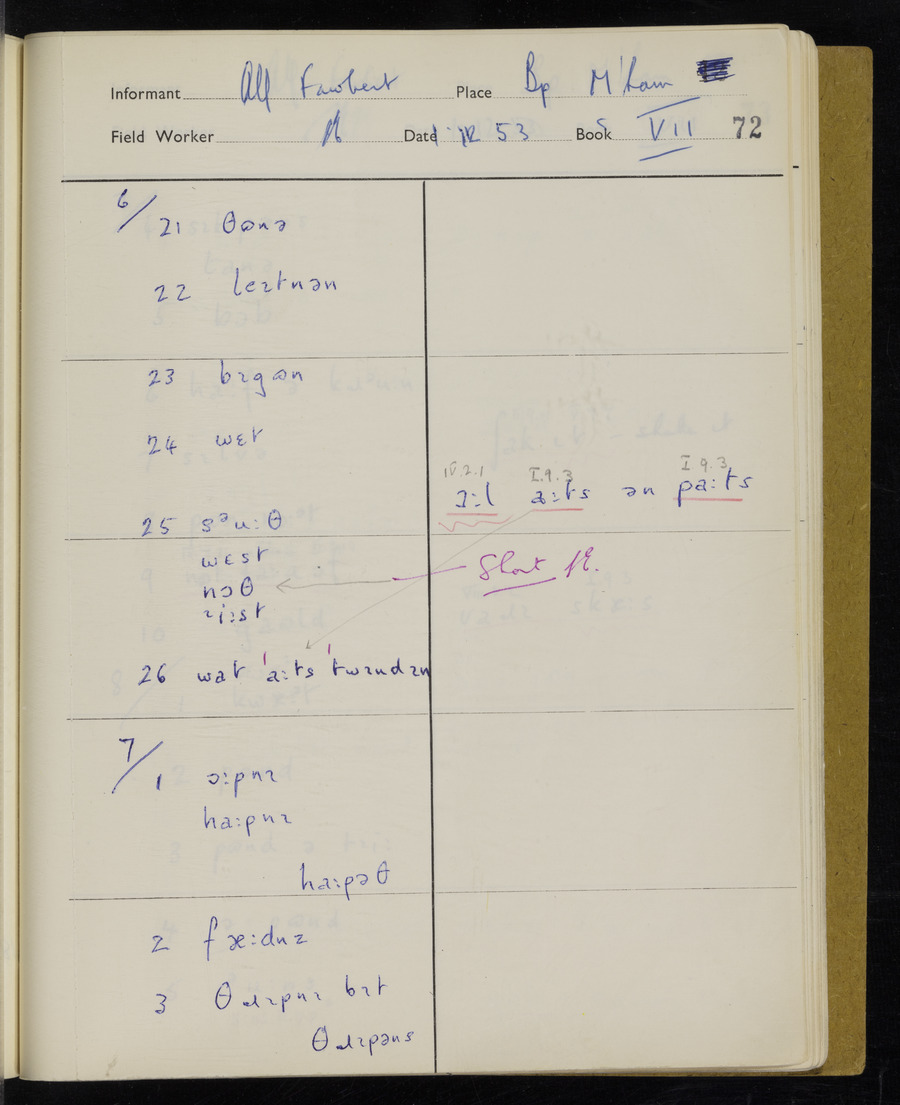 Informant All Fawbert Place Bp M'ham
Field Worker Date 1 IX 53 Book VII 72
6/ 21 θɒnə
22 lɛɪtnən
23 bɪgɒn
24 wɛt
IV.2.1 I.9.3 I.9.3
ɔ:l a:ts ən pa:ts
25 sᵊu:θ
wɛst
nɔθ
ɹi:st
Short
26 wat 'a:ts 'twɪndɪn
7/ 1 ɔ:pnɪ
ha:pnɪ
ha:pəθ
2 fæ:dnɪ
3 θɹɪpnɪ bɪt
θɹɪpəns